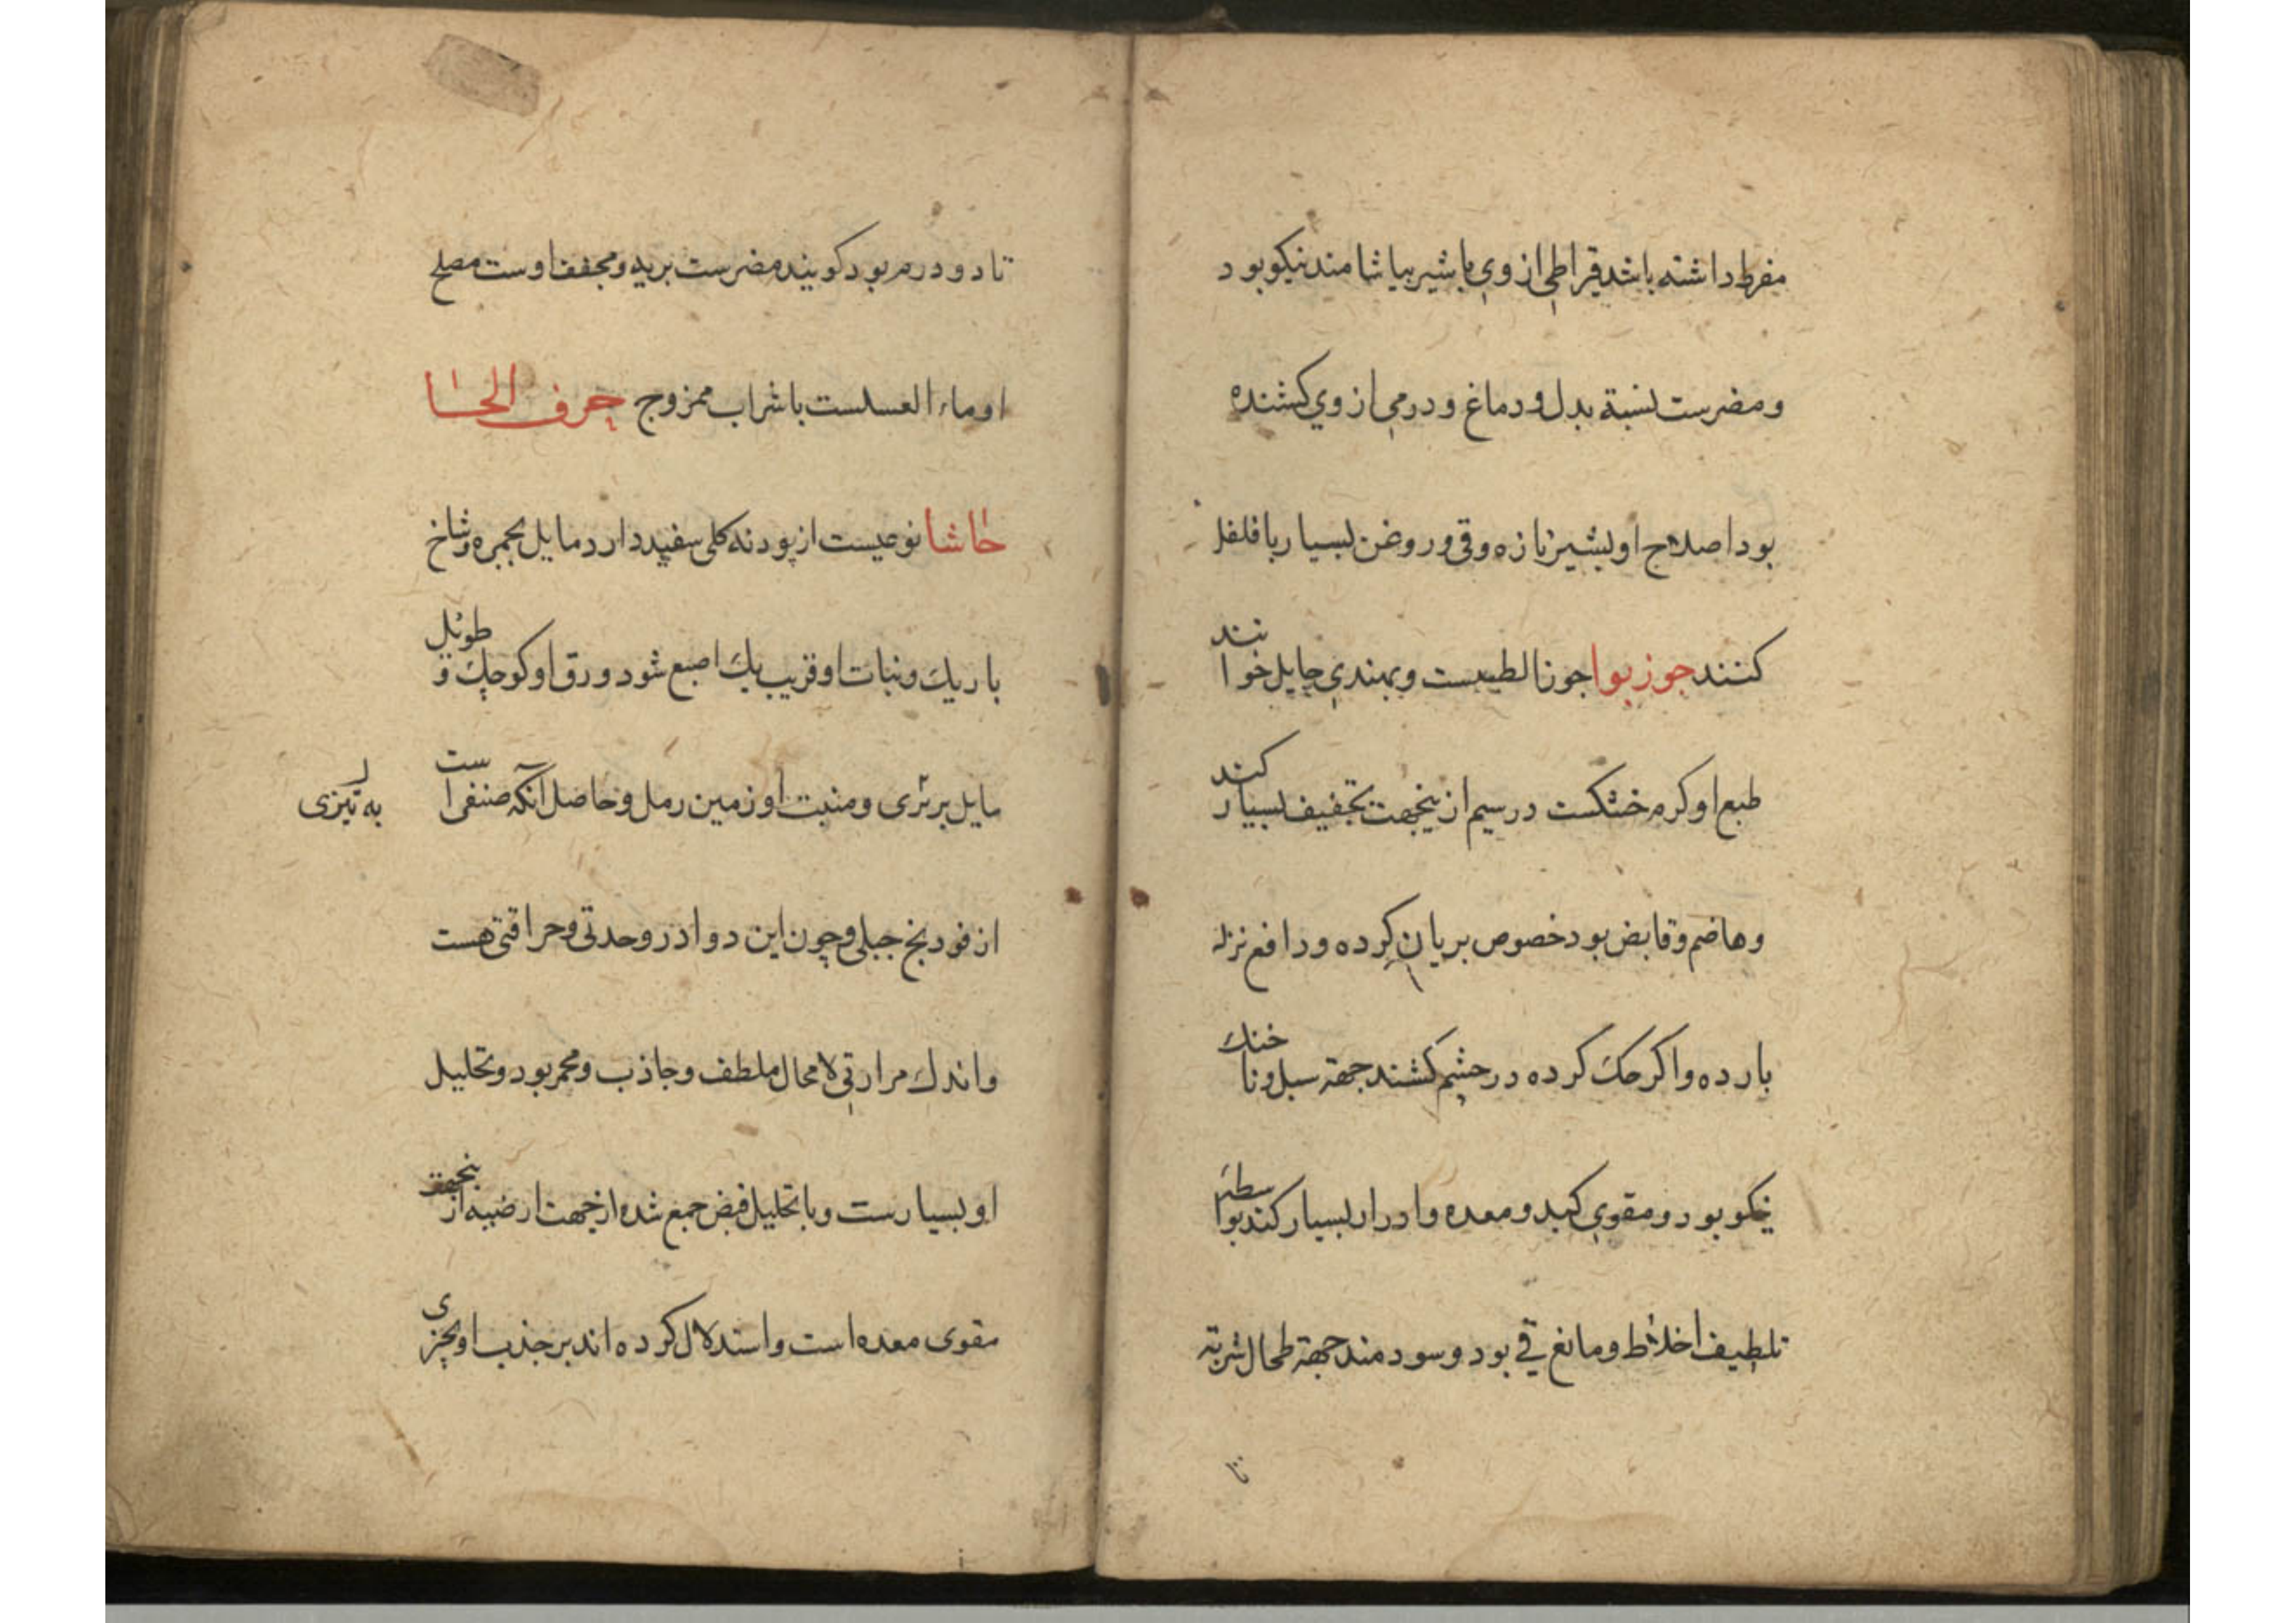 مفرط داشته باشد قیراطی از وی باشیر بیاشامند نیکو بود
و مضرست نسبة بدل و دماغ و درمی از وی کشنده
بود اصلاح او بشیر تازه و قی و روغن بسیار با فلفل
کنند جوز بوا جوز الطیبست و بهندی جایپل خوانند
طبع او کرم خشکست در سیم ازینجهت تجفیف بسیار کند
و هاضم و قابض بود خصوص بریان کرده و رافع نزله
بارده و اکر حک کرده در چشم کشند جهة سبل و ناخنک
نیکو بود و مقوی کبد و معده و ادرار بسیار کند بواسطهٔ
تلطیف اخلاط و مانع قی بود و سودمند جهة طحال شربته
تا
تا دو درم بود کویند مضرست بریه و مجفف اوست مصلح
او ماء العسلست با شراب ممزوج حرف الحا
حاشا نوعیست از پودنه کلی سفید دارد مایل بحمره و شاخ
باریک و نبات او قریب یک اصبع شود ورق او کوچک و طویل
مایل برتری و منبت او زمین رمل و حاصل آنکه صنفی است
به تیزی
از فودنج جبلی و چون این دوا درو حدتی و حراقتی هست
و اندک مرارتی لا محال ملطف و جاذب و محمر بود و تحلیل
او بسیارست و با تحلیل قبض جمع شده از جهت ارضیه ازینجهت
مقوی معده است و استدلال کرده اند بر جذب او بچیزی